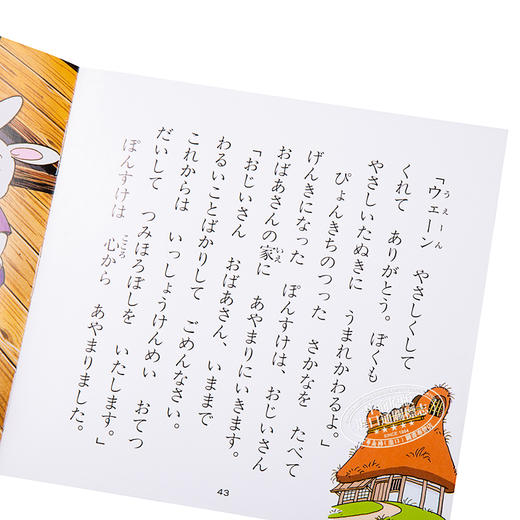 うぇーん
「ウェーン　やさしくして
くれて　ありがとう。ぼくも
やさしいたぬきに　うまれかわるよ。」
ぴょんきちのつった　さかなを　たべて
げんきになった　ぽんすけは、おじいさん
いえ
おばあさんの家に　あやまりにいきます。
「おじいさん　おばあさん、いままで
わるいことばかりして　ごめんなさい。
これからは　いっしょうけんめい　おてつ
だいして　つみほろぼしを　いたします。」
こころ
ぽんすけは　心から　あやまりました。
43